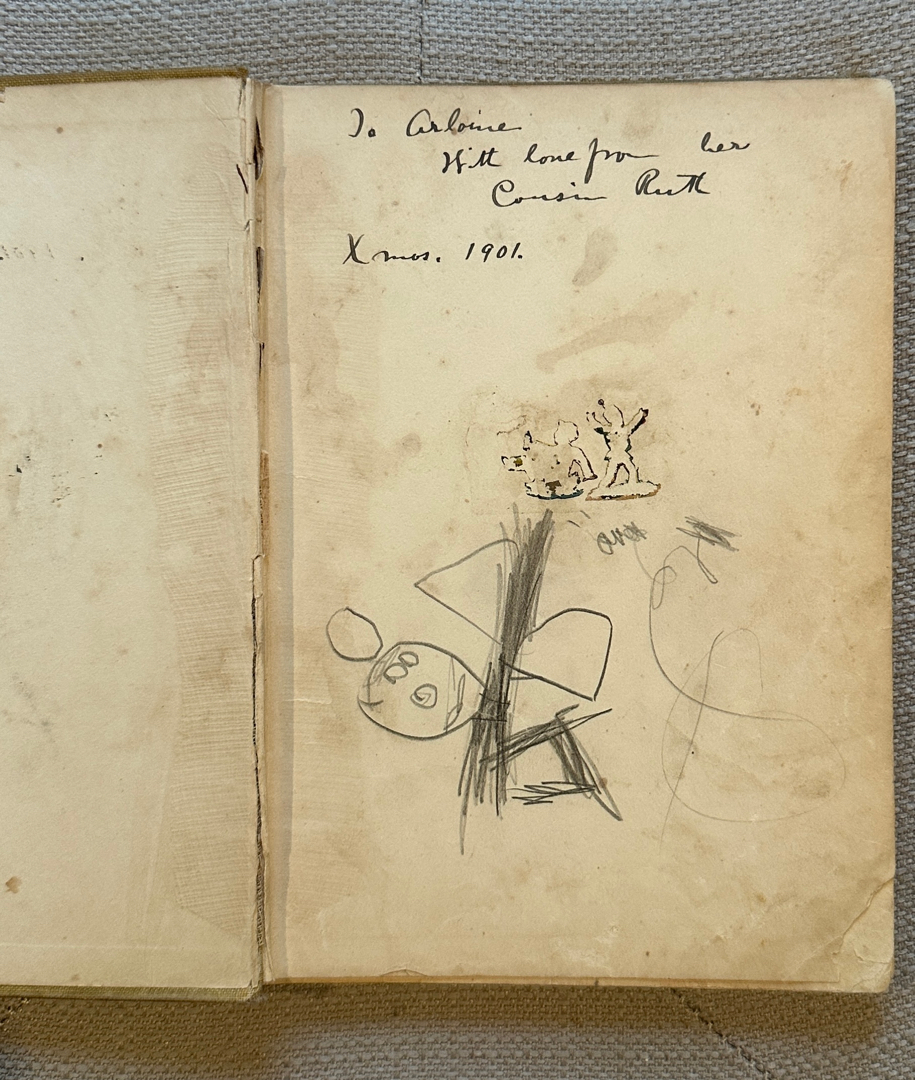 To Arloine
With love from her
Cousin Ruth
Xmas. 1901.